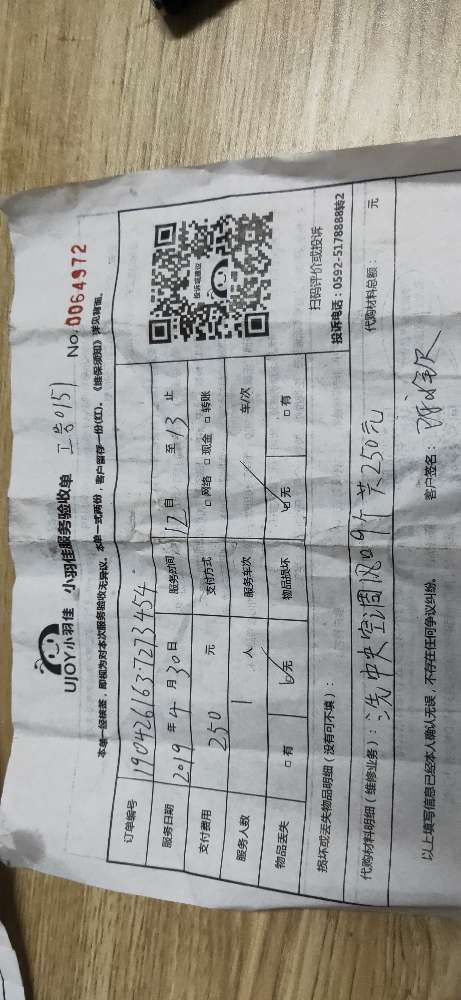 UJOY小羽佳 小羽佳服务验收单 工号0151 No.0064972
本单一经核签,即视为对本次服务验收无异议。本单一式两份 客户留存一份(红)。《维保须知》详见背面。
订单编号 1904261637273454
服务日期 2019年4月30日 服务时间 12自 至13止
支付费用 250 元 支付方式 □网络 □现金 □转账
服务人数 1 人 服务车次 车/次
物品丢失 □有 ☑无 物品损坏 ☑无 □有
投诉或建议
扫码评价或投诉
投诉电话:0592-5178888转2
损坏或丢失物品明细(没有可不填):
代购材料明细(维修业务): 代购材料总额: 元
洗中央空调风口9个 共250元
以上填写信息已经本人确认无误,不存在任何争议纠纷。 客户签名: